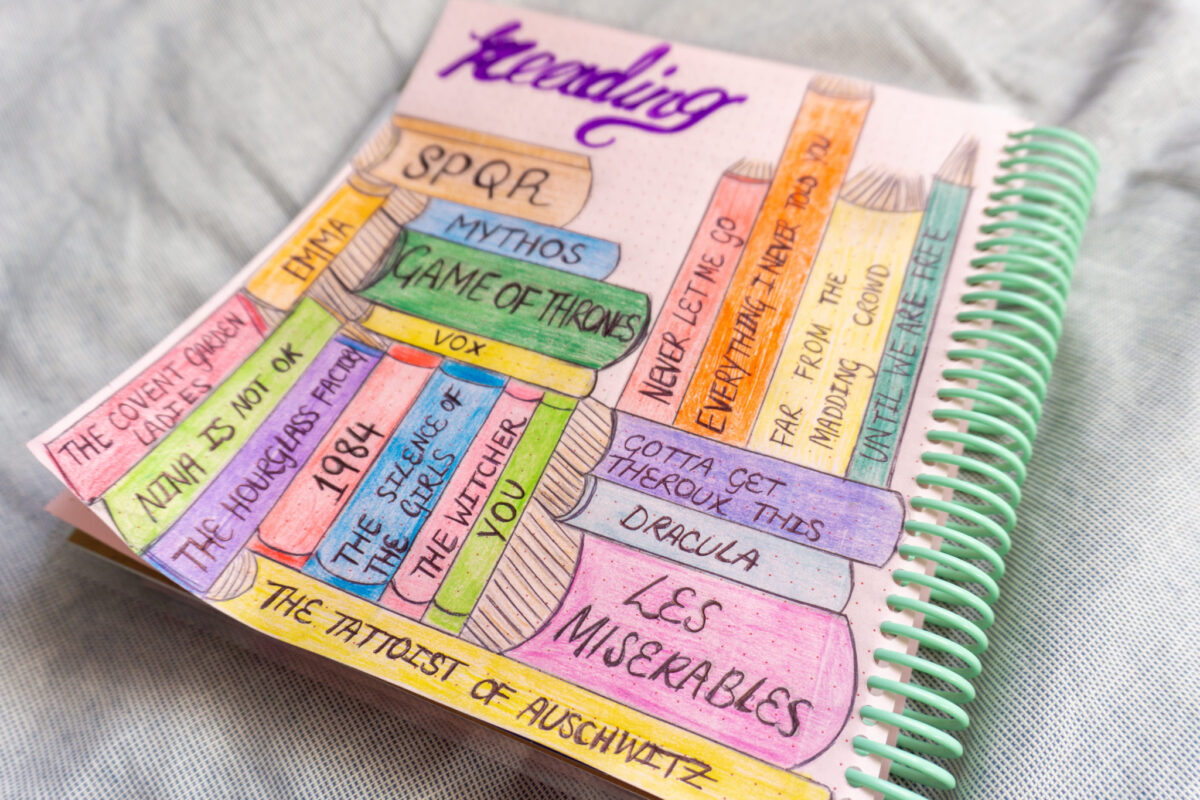 Reading
SPQR
MYTHOS
GAME OF THRONES
VOX
EMMA
THE COVENT GARDEN
LADIES
NINA IS NOT OK
THE HOURGLASS FACTORY
1984
THE SILENCE OF
THE GIRLS
THE WITCHER
YOU
NEVER LET ME GO
EVERYTHING I NEVER TOLD YOU
FAR FROM THE
MADDING CROWD
UNTIL WE ARE FREE
GOTTA GET
THEROUX THIS
DRACULA
LES
MISERABLES
THE TATTOIST OF AUSCHWITZ